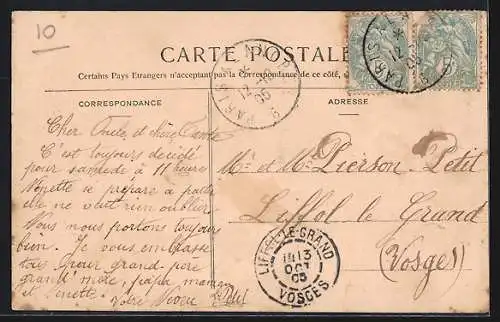 10
CARTE POSTALE
Certains Pays Etrangers n'acceptant pas la Correspondance de ce côté,
CORRESPONDANCE
ADRESSE
Cher Oncle, et chère Tante
C'est toujours décidé
pour samedi à 11 heures
Nonette se prépare à partir
elle ne veut rien oublier
Nous nous portons toujours
bien. Je vous embrasse
tous pour grand père
grand mère, papa maman
et Ninette.
Votre Neveu
Mr et Mme Pierson-Petit
Liffol le Grand
(Vosges)
PARIS
12
05
PARIS
12
05
5
LIFFOL-LE-GRAND
13
OCT
05
VOSGES